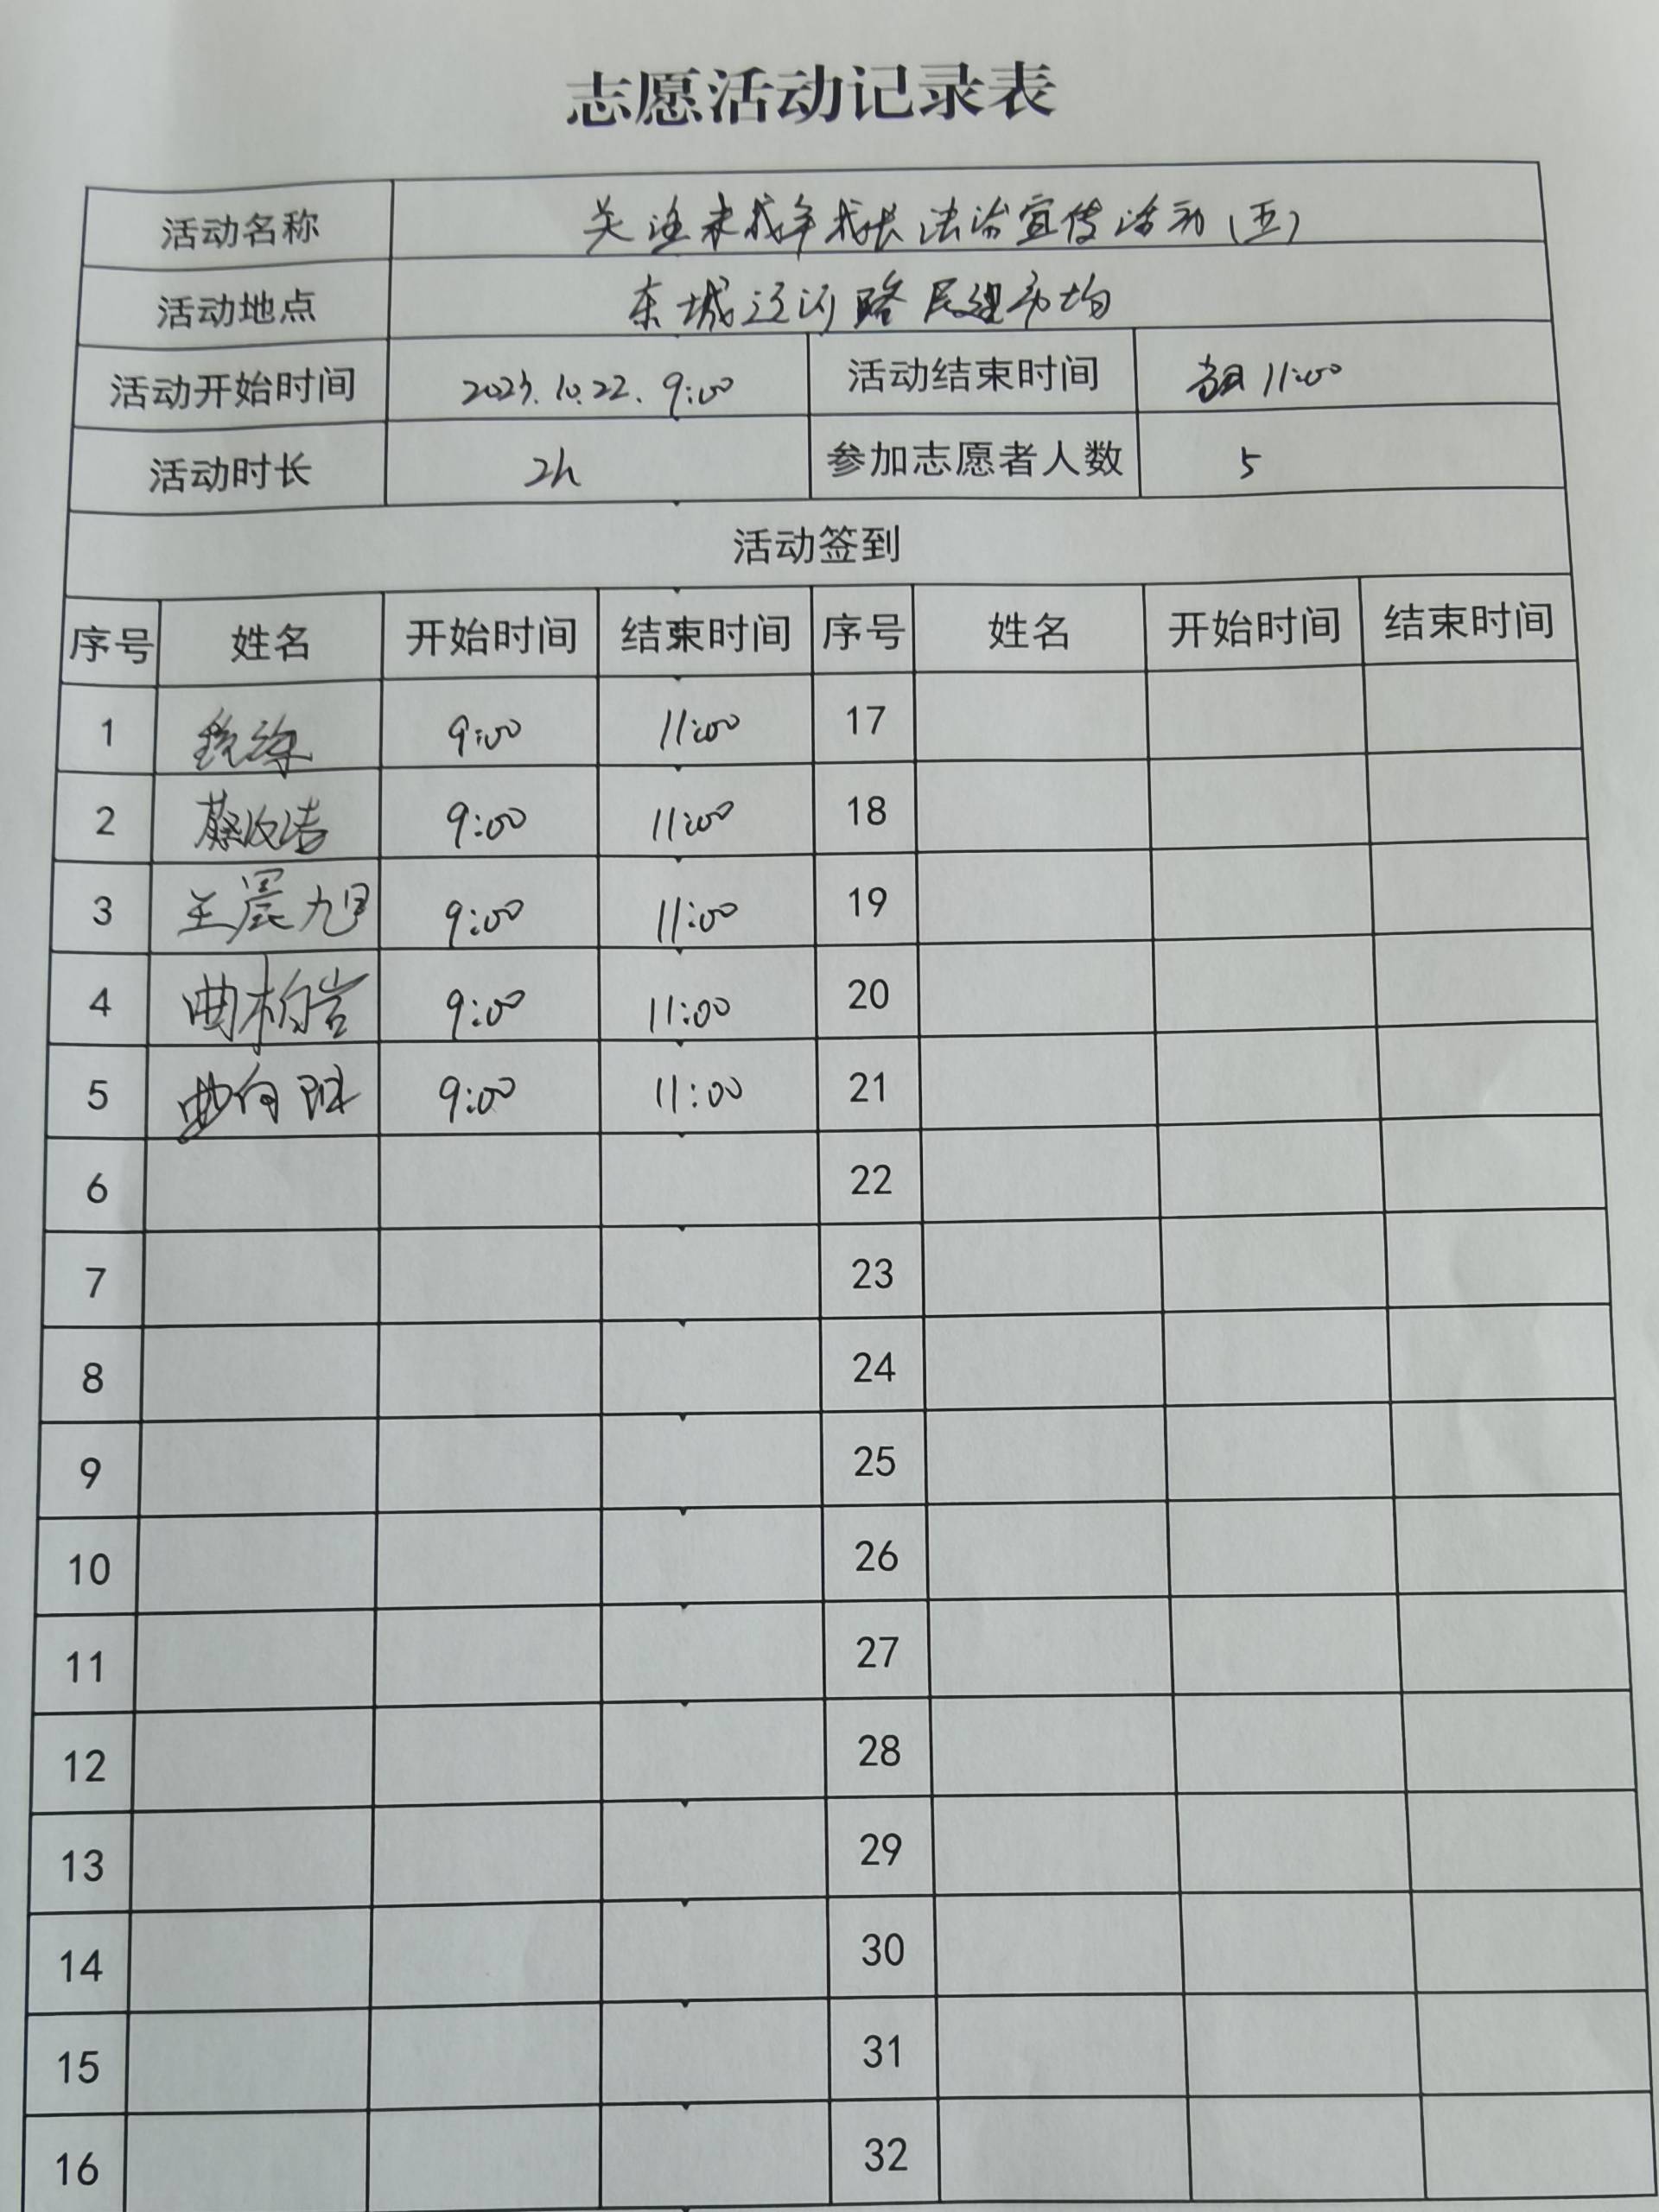 志愿活动记录表
活动名称 关注未成年成长法治宣传活动(五)
活动地点 东城辽河路民建市场
活动开始时间 2023.10.22. 9:00 活动结束时间 当日 11:00
活动时长 2h 参加志愿者人数 5
活动签到
序号 姓名 开始时间 结束时间 序号 姓名 开始时间 结束时间
1 9:00 11:00 17
2 9:00 11:00 18
3 王晨旭 9:00 11:00 19
4 曲柏岩 9:00 11:00 20
5 曲向阳 9:00 11:00 21
6 22
7 23
8 24
9 25
10 26
11 27
12 28
13 29
14 30
15 31
16 32